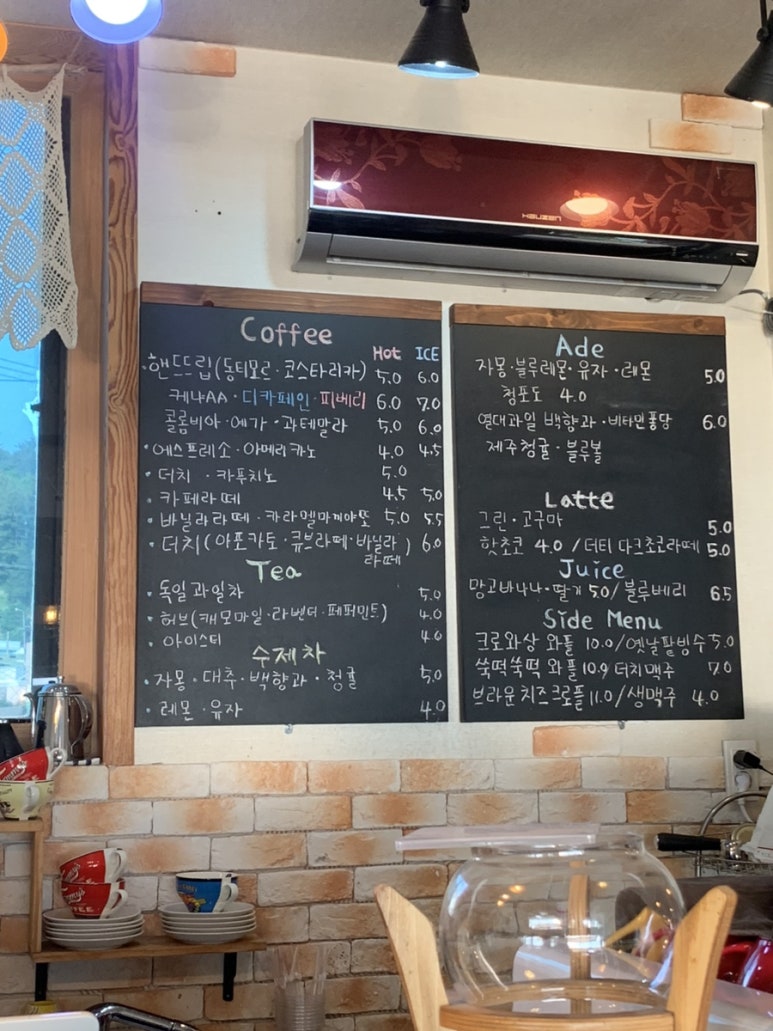 HAUZEN
Coffee
Hot ICE
·핸드드립(동티모르·코스타리카) 5.0 6.0
케냐AA·디카페인·피베리 6.0 7.0
콜롬비아·예가·과테말라 5.0 6.0
·에스프레소·아메리카노 4.0 4.5
·더치·카푸치노 5.0
·카페라떼 4.5 5.0
·바닐라라떼·카라멜마끼야또 5.0 5.5
·더치(아포카토·큐브라떼·바닐라 라떼) 6.0
Tea
·독일과일차 5.0
·허브(캐모마일·라벤더·페퍼민트) 4.0
·아이스티 4.0
수제차
·자몽·대추·백향과·청귤 5.0
·레몬·유자 4.0
Ade
자몽·블루레몬·유자·레몬 5.0
청포도 4.0
열대과일 백향과·비타민퐁당 6.0
제주청귤·블루볼
Latte
그린·고구마 5.0
핫초코 4.0 /더티 다크초코라떼 5.0
Juice
망고바나나·딸기 5.0/블루베리 6.5
Side Menu
크로와상 와플 10.0/옛날팥빙수 5.0
쑥떡쑥떡 와플 10.9 더치맥주 7.0
브라운치즈크로플 11.0/생맥주 4.0